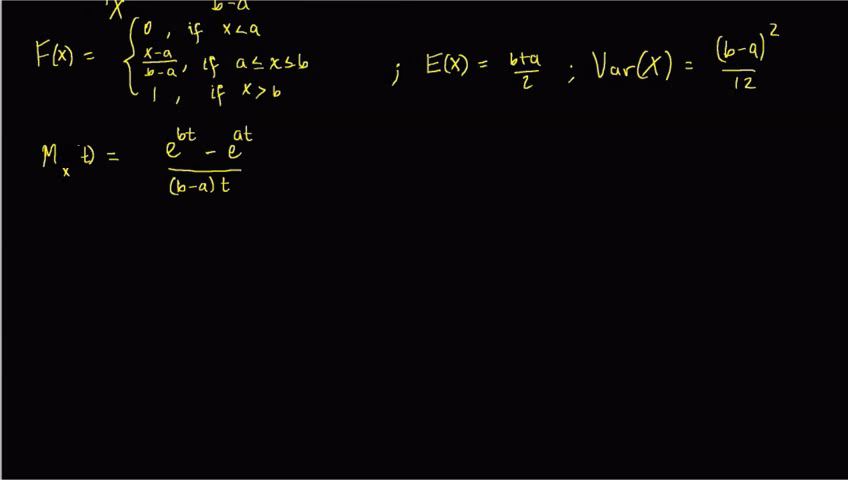 X b-a
F(x) = { 0 , if x<a
x-a/b-a , if a≤x≤b ; E(X) = b+a/2 ; Var(X) = (b-a)²/12
1 , if x>b
M_x t) = e^bt - e^at / (b-a) t